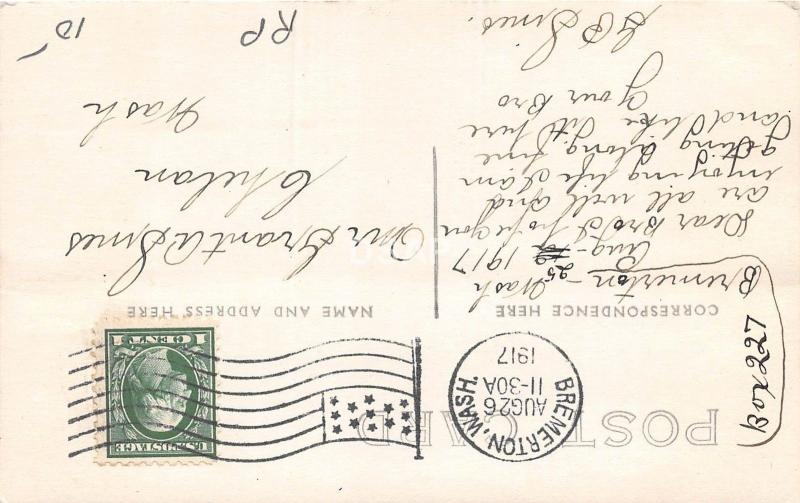 POST CARD
BREMERTON, WASH.
AUG 26
11-30A
1917
U.S. POSTAGE
1 CENT 1
CORRESPONDENCE HERE
NAME AND ADDRESS HERE
Box 227
Bremerton -
Wash
Aug - 25 1917
Dear Bro I hope you
are all well and
enjoying life I am
getting along fine
and I like it here
Your Bro
Sines.
Mr Grant A Sines
Chelan
Wash
RP
10